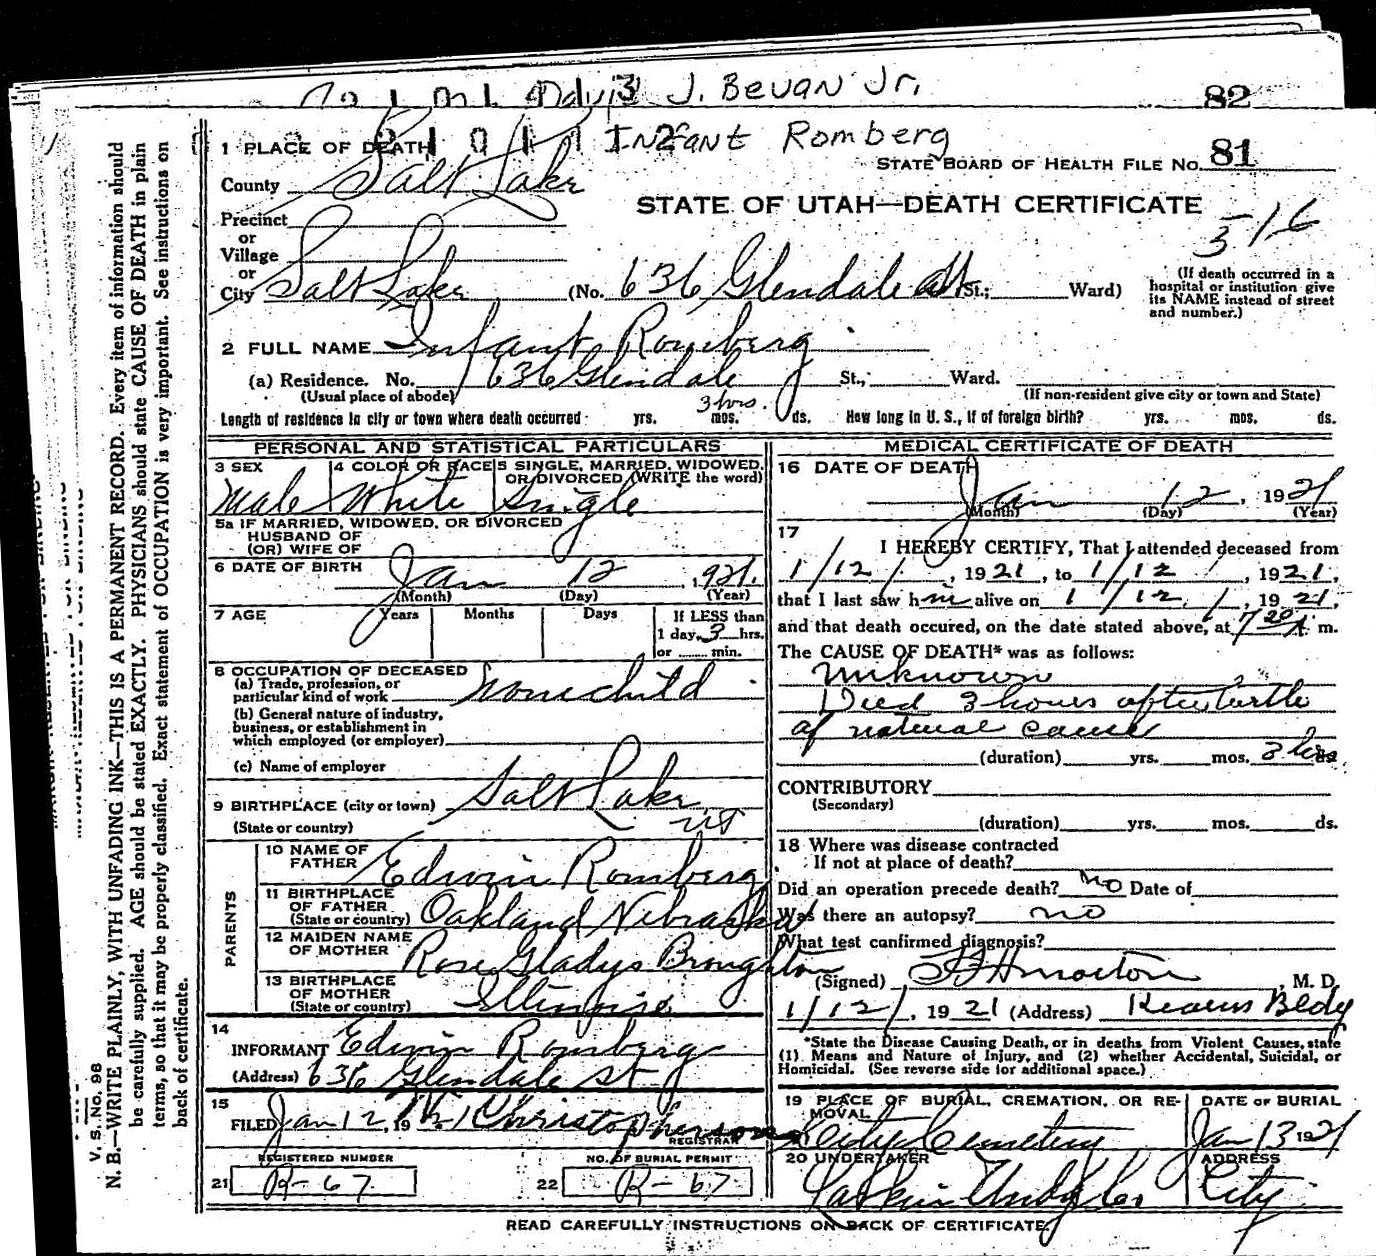 J. BEVAN Jr.
82
INFANT Romberg
1 PLACE OF DEATH
STATE BOARD OF HEALTH FILE NO. 81
County Salt Lake
STATE OF UTAH—DEATH CERTIFICATE
Precinct
or
Village
or
City Salt Lake (No. 636 Glendale St.; Ward)
(If death occurred in a hospital or institution give its NAME instead of street and number.)
2 FULL NAME Infant Romberg
(a) Residence. No. 636 Glendale St., Ward.
(Usual place of abode) (If non-resident give city or town and State)
Length of residence in city or town where death occurred yrs. mos. 3 hrs. ds. How long in U. S., if of foreign birth? yrs. mos. ds.
PERSONAL AND STATISTICAL PARTICULARS
3 SEX 4 COLOR OR RACE 5 SINGLE, MARRIED, WIDOWED, OR DIVORCED (WRITE the word)
Male White Single
5a IF MARRIED, WIDOWED, OR DIVORCED
HUSBAND OF
(OR) WIFE OF
6 DATE OF BIRTH Jan 12, 1921.
(Month) (Day) (Year)
7 AGE Years Months Days If LESS than
1 day, 3 hrs.
or ........ min.
8 OCCUPATION OF DECEASED
(a) Trade, profession, or
particular kind of work None child
(b) General nature of industry,
business, or establishment in
which employed (or employer)
(c) Name of employer
9 BIRTHPLACE (city or town) Salt Lake
(State or country) Ut
PARENTS
10 NAME OF
FATHER Edwin Romberg
11 BIRTHPLACE
OF FATHER
(State or country) Oakland Nebraska
12 MAIDEN NAME
OF MOTHER Rose Gladys Broughton
13 BIRTHPLACE
OF MOTHER
(State or country) Illinoise
14
INFORMANT Edwin Romberg
(Address) 636 Glendale St
15
FILED Jan 12, 1921 Christopherson
REGISTRAR
REGISTERED NUMBER NO. OF BURIAL PERMIT
21 R-67 22 R-67
MEDICAL CERTIFICATE OF DEATH
16 DATE OF DEATH
Jan 12, 1921
(Month) (Day) (Year)
17
I HEREBY CERTIFY, That I attended deceased from
1/12/, 1921, to 1/12/, 1921,
that I last saw him alive on 1/12/, 1921,
and that death occured, on the date stated above, at 7 20 A m.
The CAUSE OF DEATH* was as follows:
Unknown
Died 3 hours after birth
of natural cause
(duration) yrs. mos. 3 hrs ds.
CONTRIBUTORY
(Secondary)
(duration) yrs. mos. ds.
18 Where was disease contracted
If not at place of death?
Did an operation precede death? no Date of
Was there an autopsy? no
What test confirmed diagnosis?
(Signed) Morton, M. D.
1/12/, 1921 (Address) Kearns Bldg
*State the Disease Causing Death, or in deaths from Violent Causes, state
(1) Means and Nature of Injury, and (2) whether Accidental, Suicidal, or
Homicidal. (See reverse side for additional space.)
19 PLACE OF BURIAL, CREMATION, OR RE-
MOVAL
City Cemetery
DATE OF BURIAL
Jan 13 1921
20 UNDERTAKER
Larkin Und Co
ADDRESS
City
READ CAREFULLY INSTRUCTIONS ON BACK OF CERTIFICATE
V. S. No. 98
N. B.—WRITE PLAINLY, WITH UNFADING INK—THIS IS A PERMANENT RECORD. Every item of information should
be carefully supplied. AGE should be stated EXACTLY. PHYSICIANS should state CAUSE OF DEATH in plain
terms, so that it may be properly classified. Exact statement of OCCUPATION is very important. See instructions on
back of certificate.